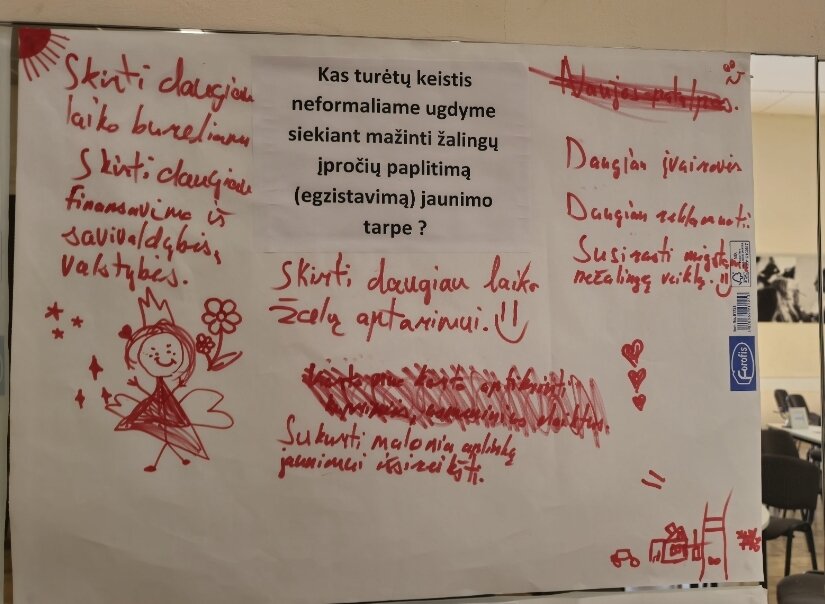 Skirti daugiau
laiko bureliams
Skirti daugiau
finansavimo iš
savivaldybės,
valstybės.
Kas turėtų keistis
neformaliame ugdyme
siekiant mažinti žalingų
įpročių paplitimą
(egzistavimą) jaunimo
tarpe ?
Skirti daugiau laiko
žalų aptarimui.
Sukurti malonią aplinką
jaunimui išsireikšti.
Naujos patalpos.
Daugiau įvairovės
Daugiau reklamuoti
Susirasti mėgstamą
nežalingą veiklą.
FSC
Forofis